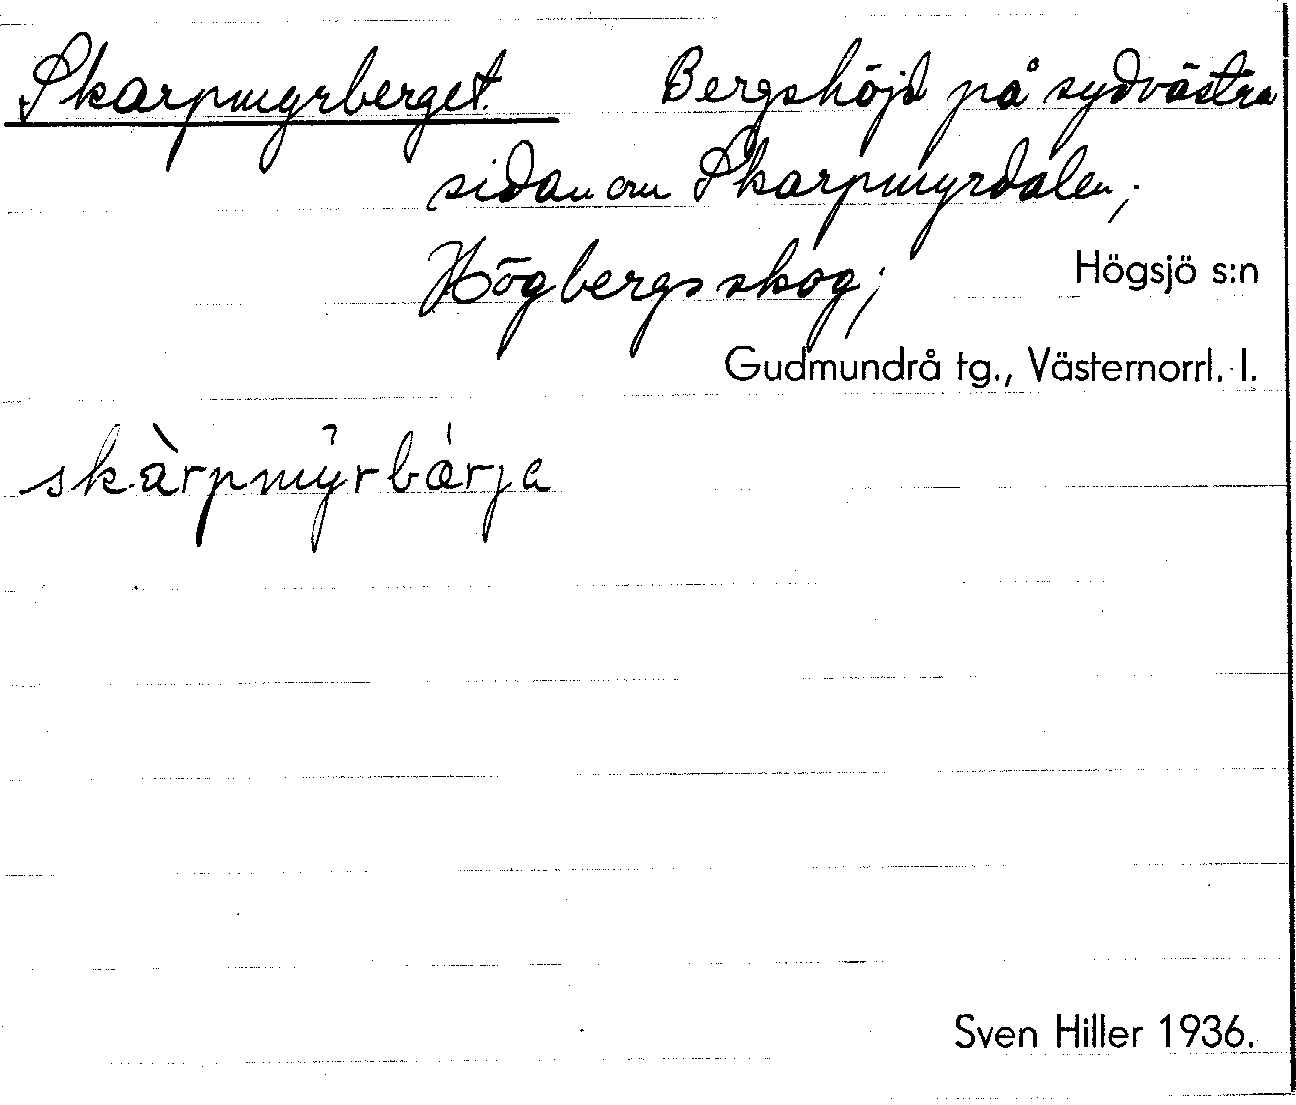 Skarpmyrberget. Bergshöjd på sydvästra
sidan om Skarpmyrdalen;
Högbergsskog; Högsjö s:n
Gudmundrå tg., Västernorrl. l.
skàrpmy̓rbárja
Sven Hiller 1936.